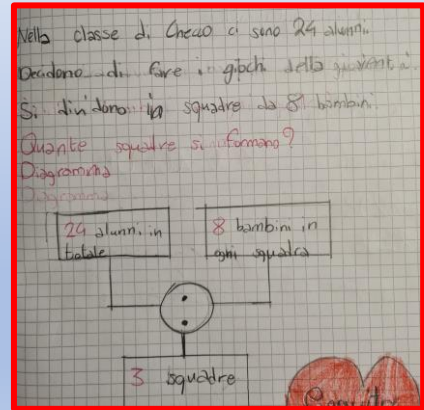 Nella classe di Checco ci sono 24 alunni.
Decidono di fare i giochi della gioventù.
Si dividono in squadre da 8 bambini.
Quante squadre si formano?
Diagramma
Diagramma
24 alunni in
totale
8 bambini in
ogni squadra
:
3 squadre